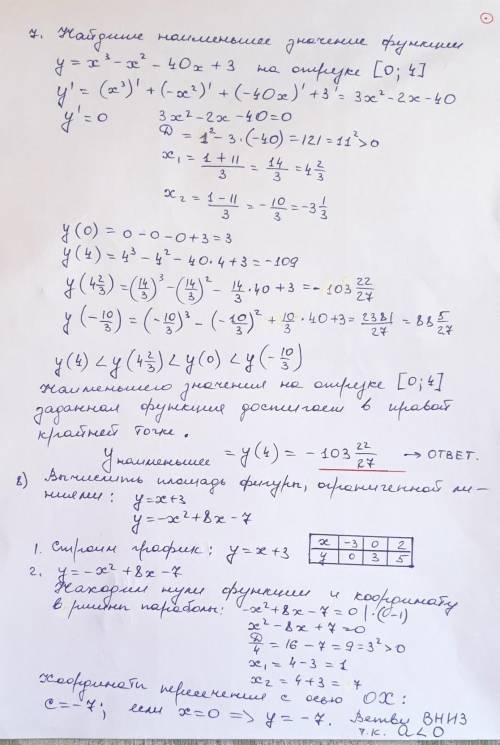 7. Найдите наименьшее значение функции
y = x³ - x² - 40x + 3 на отрезке [0; 4]
y' = (x³)' + (-x²)' + (-40x)' + 3' = 3x² - 2x - 40
y' = 0 3x² - 2x - 40 = 0
D = 1² - 3·(-40) = 121 = 11² > 0
x₁ = (1 + 11)/3 = 14/3 = 4 2/3
x₂ = (1 - 11)/3 = -10/3 = -3 1/3
y(0) = 0 - 0 - 0 + 3 = 3
y(4) = 4³ - 4² - 40·4 + 3 = -109
y(4 2/3) = (14/3)³ - (14/3)² - 14/3 · 40 + 3 = -103 22/27
y(-10/3) = (-10/3)³ - (-10/3)² + 10/3 · 40 + 3 = 2381/27 = 88 5/27
y(4) < y(4 2/3) < y(0) < y(-10/3)
Наименьшего значения на отрезке [0; 4]
заданная функция достигает в правой
крайней точке.
y наименьшее = y(4) = -103 22/27 → ОТВЕТ.
8) Вычислить площадь фигуры, ограниченной ли-
ниями: y = x + 3
y = -x² + 8x - 7
1. Строим график: y = x + 3
x -3 0 2
y 0 3 5
2. y = -x² + 8x - 7
Находим нули функции и координату
вершины параболы: -x² + 8x - 7 = 0 | ·(-1)
x² - 8x + 7 = 0
D/4 = 16 - 7 = 9 = 3² > 0
x₁ = 4 - 3 = 1
x₂ = 4 + 3 = 7
Координаты пересечения с осью OX:
c = -7; если x = 0 => y = -7. Ветви ВНИЗ
т.к. a < 0